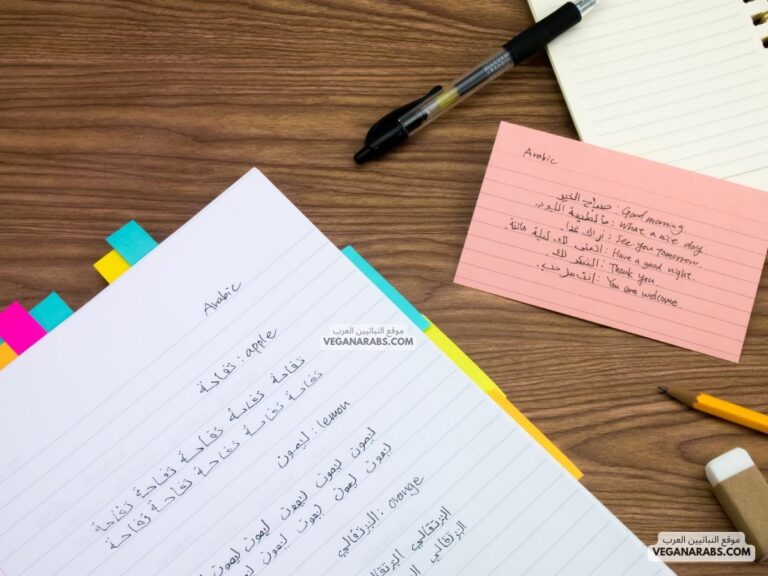 Arabic
تفاحة : apple
تفاحة تفاحة تفاحة تفاحة تفاحة
تفاحة تفاحة تفاحة تفاحة تفاحة
ليمون : lemon
ليمون ليمون ليمون ليمون ليمون
ليمون ليمون ليمون ليمون
البرتقالي : orange
البرتقالي البرتقالي
البرتقالي
Arabic
صباح الخير : Good morning
: What a nice day
نراك غدا : See you tomorrow.
لك ليلة هانئة : Have a good night.
الشكر لك : Thank you.
انت مرحب : You are welcome.
موقع النباتيين العرب
VEGANARABS.COM
موقع النباتيين العرب
VEGANARABS.COM